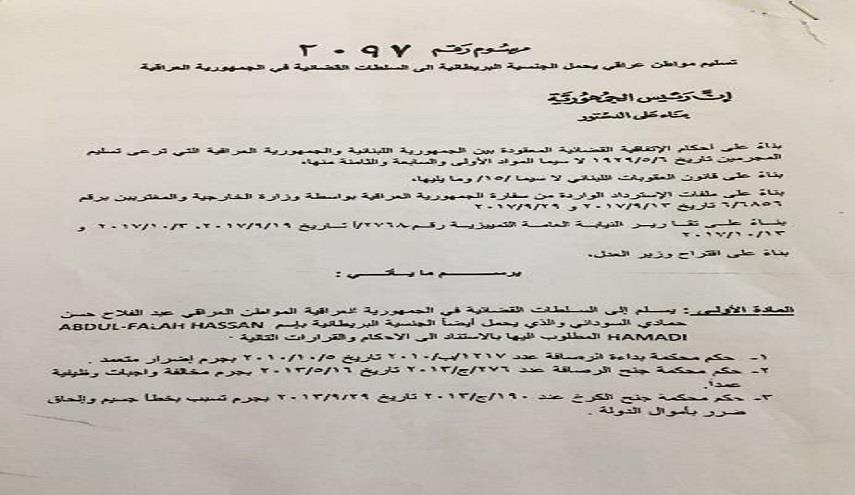 مرسوم رقم ٢٠٩٧
تسليم مواطن عراقي يحمل الجنسية البريطانية الى السلطات القضائية في الجمهورية العراقية
إن رئيس الجمهورية
بناء على الدستور
بناءً على أحكام الإتفاقية القضائية المعقودة بين الجمهورية اللبنانية والجمهورية العراقية التي ترعى تسليم
المجرمين تاريخ ١٩٢٩/٥/٦ لا سيما المواد الأولى والسابعة والثامنة منها،
بناءً على قانون العقوبات اللبناني لا سيما /١٥/ وما يليها،
بناءً على ملفات الإسترداد الواردة من سفارة الجمهورية العراقية بواسطة وزارة الخارجية والمغتربين برقم
٦/٦٨٥٦ تاريخ ٢٠١٧/٩/١٣ و ٢٠١٧/٩/٢٩
بناءً على تقارير النيابة العامة التمييزية رقم ٢٧٦٨/أ تاريخ ٢٠١٧/٩/١٩، ٢٠١٧/١٠/٣ و
٢٠١٧/١٠/١٣
بناءً على اقتراح وزير العدل،
يرسم ما يأتي :
المادة الأولى : يسلم إلى السلطات القضائية في الجمهورية العراقية المواطن العراقي عبد الفلاح حسن
حمادي السوداني والذي يحمل أيضاً الجنسية البريطانية بإسم ABDUL-FALAH HASSAN
HAMADI المطلوب اليها بالاستناد الى الاحكام والقرارات التالية :
١- حكم محكمة بداءة الرصافة عدد ١٢١٧/ب/٢٠١٠ تاريخ ٢٠١٠/١٠/٥ بجرم إضرار متعمد .
٢- حكم محكمة جنح الرصافة عدد ٢٧٦/ج/٢٠١٣ تاريخ ٢٠١٣/٥/١٦ بجرم مخالفة واجبات وظيفية
عمداً.
٣- حكم محكمة جنح الكرخ عدد ١٩٠/ج/٢٠١٣ تاريخ ٢٠١٣/٩/٢٩ بجرم تسبب بخطأ جسيم وإلحاق
ضرر بأموال الدولة .